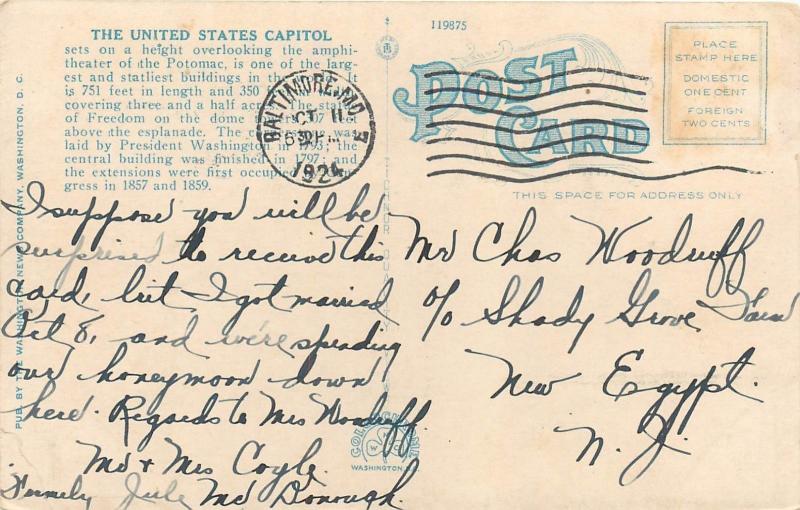 THE UNITED STATES CAPITOL
sets on a height overlooking the amphi-
theater of the Potomac, is one of the larg-
est and stateliest buildings in the It
is 751 feet in length and 350 f
covering three and a half ac The stat
of Freedom on the dome is feet
above the esplanade. The co was
laid by President Washington in 1793; the
central building was finished in 1797; and
the extensions were first occupied
gress in 1857 and 1859.
PUB. BY THE WASHINGTON NEWS COMPANY, WASHINGTON, D. C.
BALTIMORE, MD.
OCT 11
630 P M
1924
119875
POST
CARD
PLACE
STAMP HERE
DOMESTIC
ONE CENT
FOREIGN
TWO CENTS
THIS SPACE FOR ADDRESS ONLY
I suppose you will be
surprised to receive this
card, but I got married
Oct 8, and we're spending
our honeymoon down
here. Regards to Mrs Woodruff.
Mr + Mrs Coyle.
Formely Julie Mc Donough.
Mr Chas Woodruff
c/o Shady Grove Farm
New Egypt.
N. J.
WASHINGTON